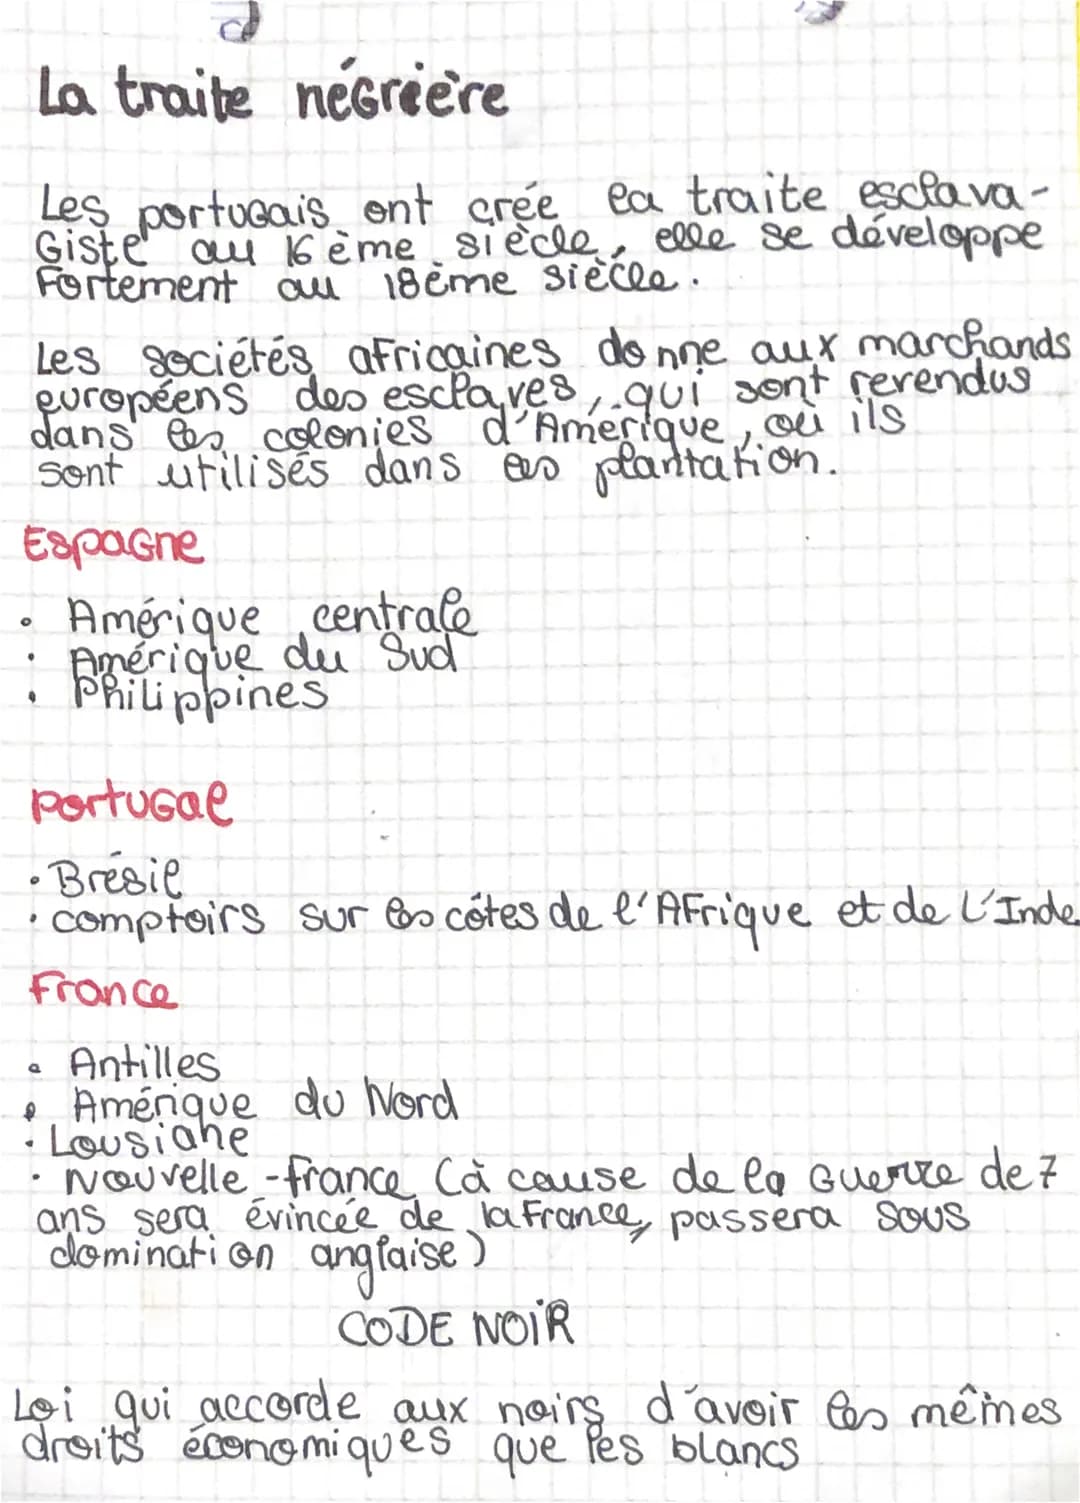 La traite négrière
Les portugais ont crée la traite esclava-
giste au 16ème siècle, elle se développe
Fortement au 18ème siècle.
Les sociétés africaines donne aux marchands
européens des esclaves, qui sont revendus
dans les colonies d'Amérique, où ils
sont utilisés dans les plantation.
Espagne
• Amérique centrale
• Amérique du Sud
• Philippines
Portugal
• Brésil
• comptoirs sur les côtes de l'Afrique et de L'Inde
France
• Antilles
• Amérique du Nord
• Lousiane
• Nouvelle-france (à cause de la Guerre de 7
ans sera évincée de la France, passera sous
domination anglaise)
CODE NOIR
Loi qui accorde aux noirs d'avoir les mêmes
droits économiques que les blancs